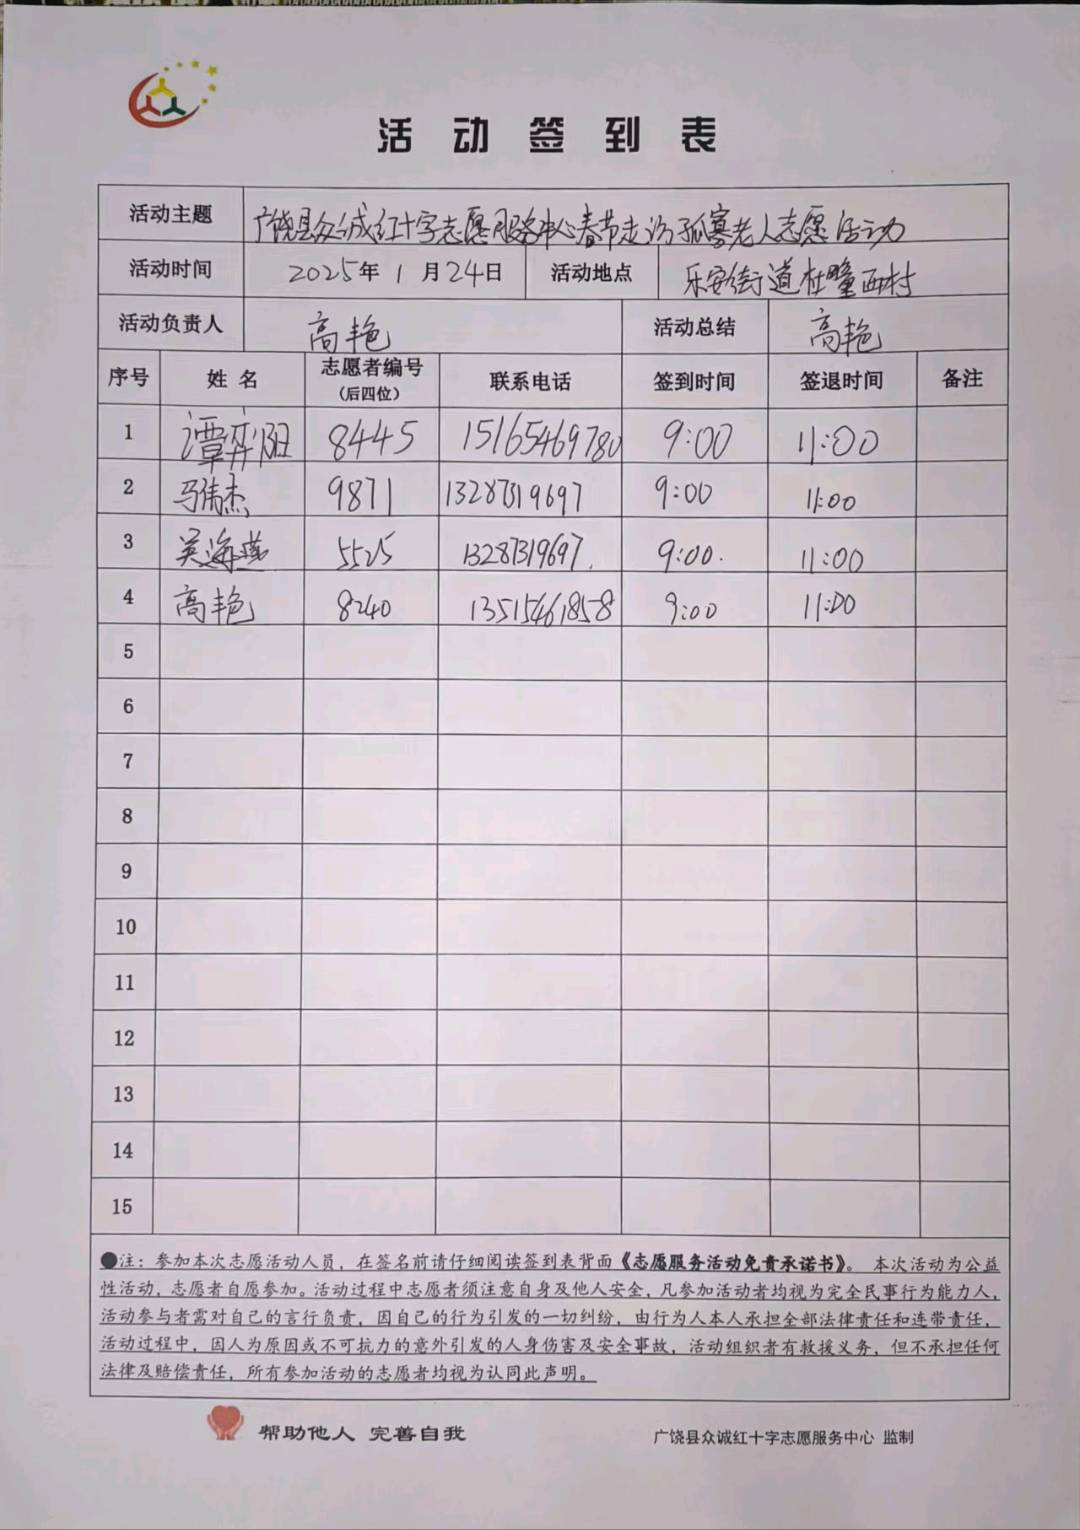 活动签到表
活动主题 广饶县众诚红十字志愿服务中心春节走访孤寡老人志愿活动
活动时间 2025年1月24日 活动地点 乐安街道杜疃西村
活动负责人 高艳 活动总结 高艳
序号 姓名 志愿者编号(后四位) 联系电话 签到时间 签退时间 备注
1 谭弈阳 8445 15165469780 9:00 11:00
2 马伟杰 9871 13287319697 9:00 11:00
3 吴海燕 5525 13287319697. 9:00. 11:00
4 高艳 8240 13515461858 9:00 11:00
5
6
7
8
9
10
11
12
13
14
15
●注：参加本次志愿活动人员，在签名前请仔细阅读签到表背面《志愿服务活动免责承诺书》。本次活动为公益
性活动，志愿者自愿参加。活动过程中志愿者须注意自身及他人安全，凡参加活动者均视为完全民事行为能力人，
活动参与者需对自己的言行负责，因自己的行为引发的一切纠纷，由行为人本人承担全部法律责任和连带责任，
活动过程中，因人为原因或不可抗力的意外引发的人身伤害及安全事故，活动组织者有救援义务，但不承担任何
法律及赔偿责任，所有参加活动的志愿者均视为认同此声明。
帮助他人 完善自我 广饶县众诚红十字志愿服务中心 监制